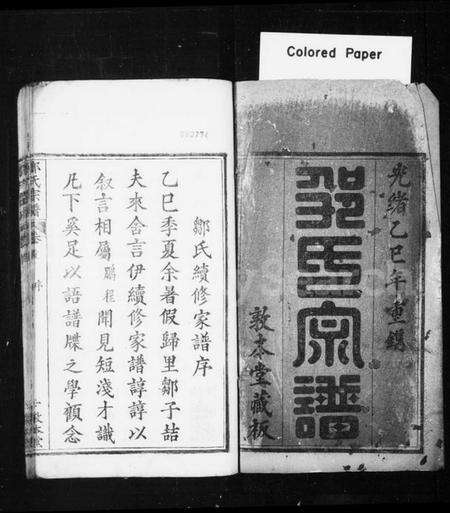 Colored Paper
光緒乙巳年重鐫
鄒氏宗譜
敦本堂藏板
鄒氏續修家譜序
乙巳季夏余暑假歸里鄒子喆
夫來舍言伊續修家譜諄諄以
叙言相屬鵬程聞見短淺才識
凡下奚足以語譜牒之學顧念